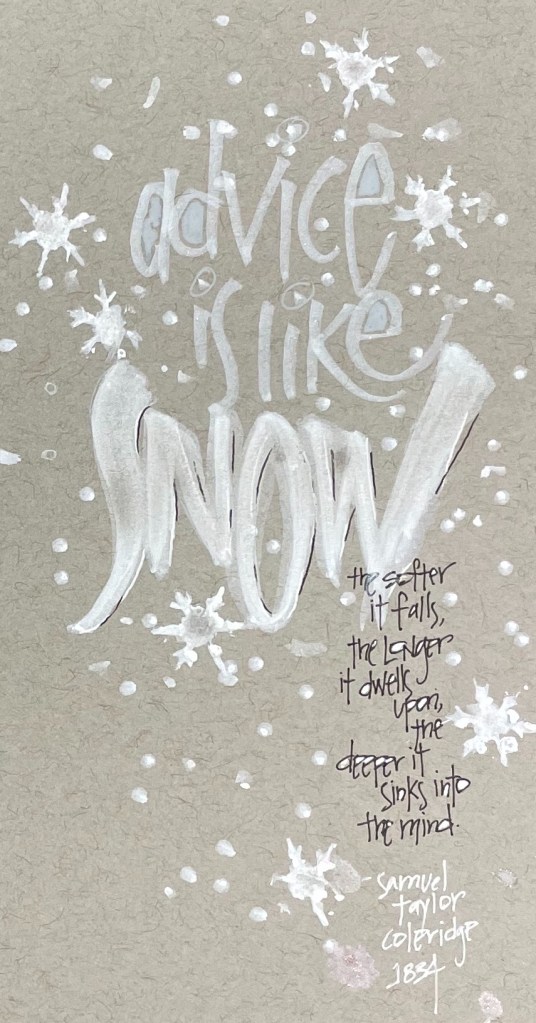 advice
is like
SNOW
the softer
it falls,
the Longer
it dwells
upon,
the
deeper it
sinks into
the mind.
-samuel
taylor
coleridge
1834